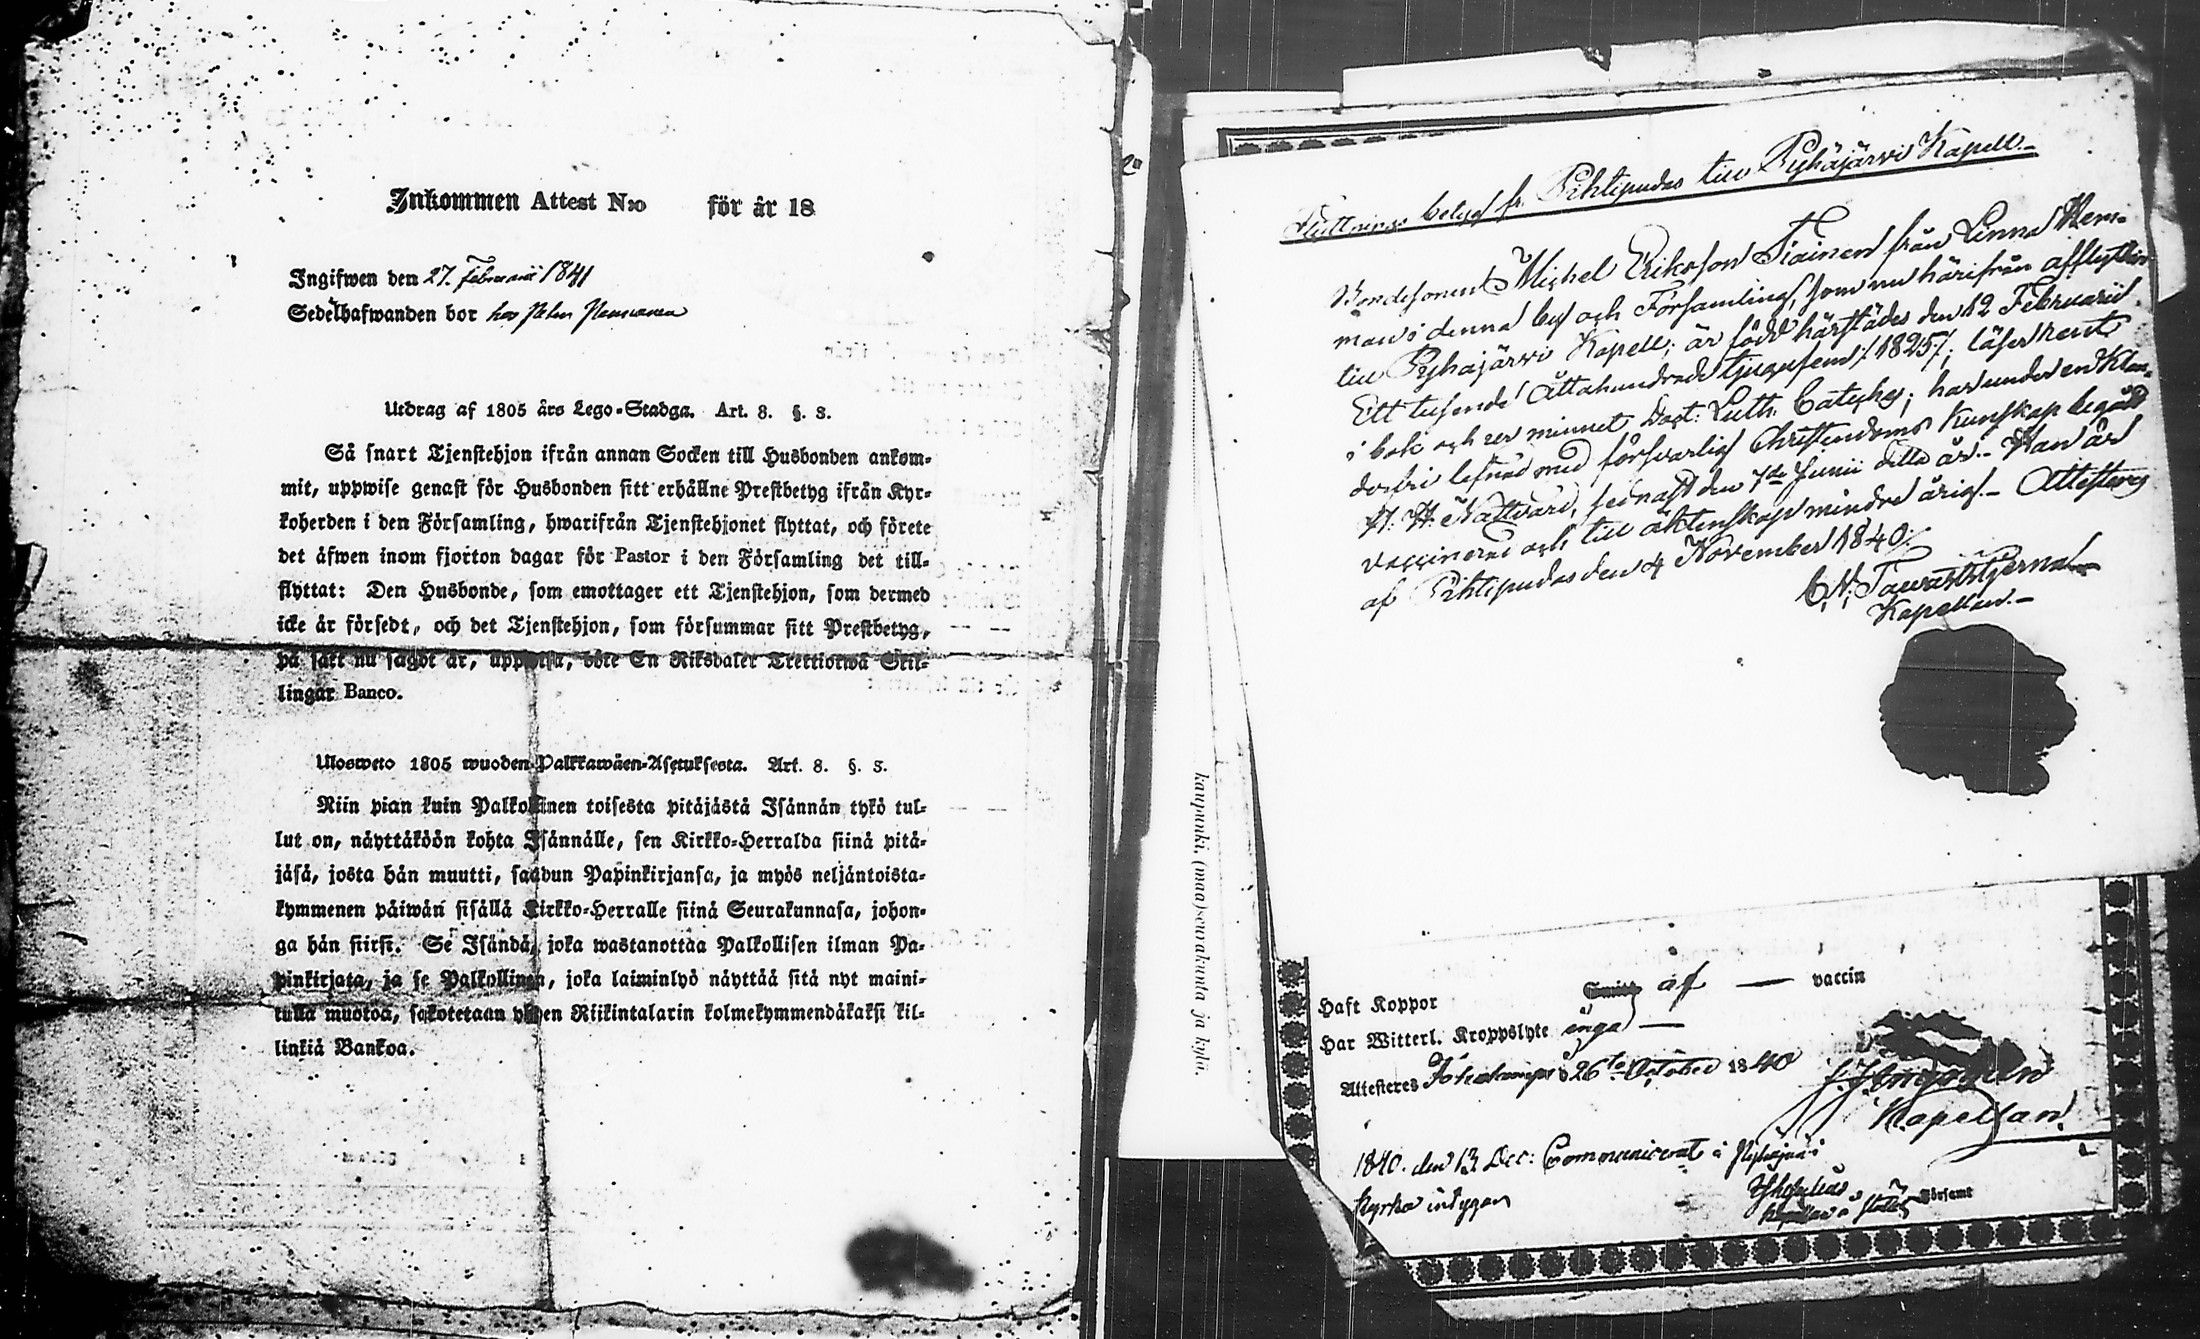 Inkommen Attest N:o för år 18
Ingifwen den 27. Februarii 1841
Sedelhafwanden bor hos Petter
Utdrag af 1805 års Lego-Stadga. Art. 8. §. 3.
Så snart Tjenstehjon ifrån annan Socken till Husbonden ankom-
mit, uppwise genast för Husbonden sitt erhållne Prestbetyg ifrån Kyr-
koherden i den Församling, hwarifrån Tjenstehjonet flyttat, och förete
det äfwen inom fjorton dagar för Pastor i den Församling det till-
flyttat: Den Husbonde, som emottager ett Tjenstehjon, som dermed
icke är försedt, och det Tjenstehjon, som försummar sitt Prestbetyg,
på sätt nu sagdt är, uppwisa, böte En Riksdaler Trettiotwå Skil-
lingar Banco.
Ulosweto 1805 wuoden Palkkawäen-Asetuksesta. Art. 8. §. 3.
Niin pian kuin Palkollinen toisesta pitäjästä Isännän tykö tul-
lut on, näyttäköön kohta Isännälle, sen Kirkko-Herralda siinä pitä-
jäsä, josta hän muutti, saadun Papinkirjansa, ja myös neljäntoista-
kymmenen päiwän sisällä Kirkko-Herralle siinä Seurakunnasa, johon-
ga hän siirsi. Se Isändä, joka wastanottaa Palkollisen ilman Pa-
pinkirjata, ja se Palkollinen, joka laiminlyö näyttää sitä nyt maini-
tulla muotoa, sakotetaan yhden Riikintalarin kolmekymmendäkaksi kil-
linkiä Bankoa.
kaupunki, (maa)seurakunta ja kylä.
Flyttnings betyg fr. Pihtipudas till Pyhäjärvi Kapell.
Bondesonen Michel Eriksson Tiainen från Linna Hem-
man i denna by och Församling, som nu härifrån afflyttar
till Pyhäjärvi Kapell, är född härstädes den 12 Februarii
Ett tusende Åttahundrade tjugufem /:1825:/, läser rent
i bok och ur minnet Doct: Luth: Cateches; har under en klan-
derfri lefnad med försvarlig Christendoms Kunskap begådt
H. H. Nattvard, sednast den 7de Junii detta år. - Han är
vaccinerad och till äktenskap mindre årig. - Attesteras
af Pihtipudas den 4 November 1840.
C. N. Tawaststjerna
Kapellan. -
Haft Koppor af — vaccin
Har Witterl. Kroppslyte inga —
Attesteres 26te October 1840
Kapellan.
1840. den 13 Dec: Communicerat i Pyhäjärvi
Kyrka intygar
Församl